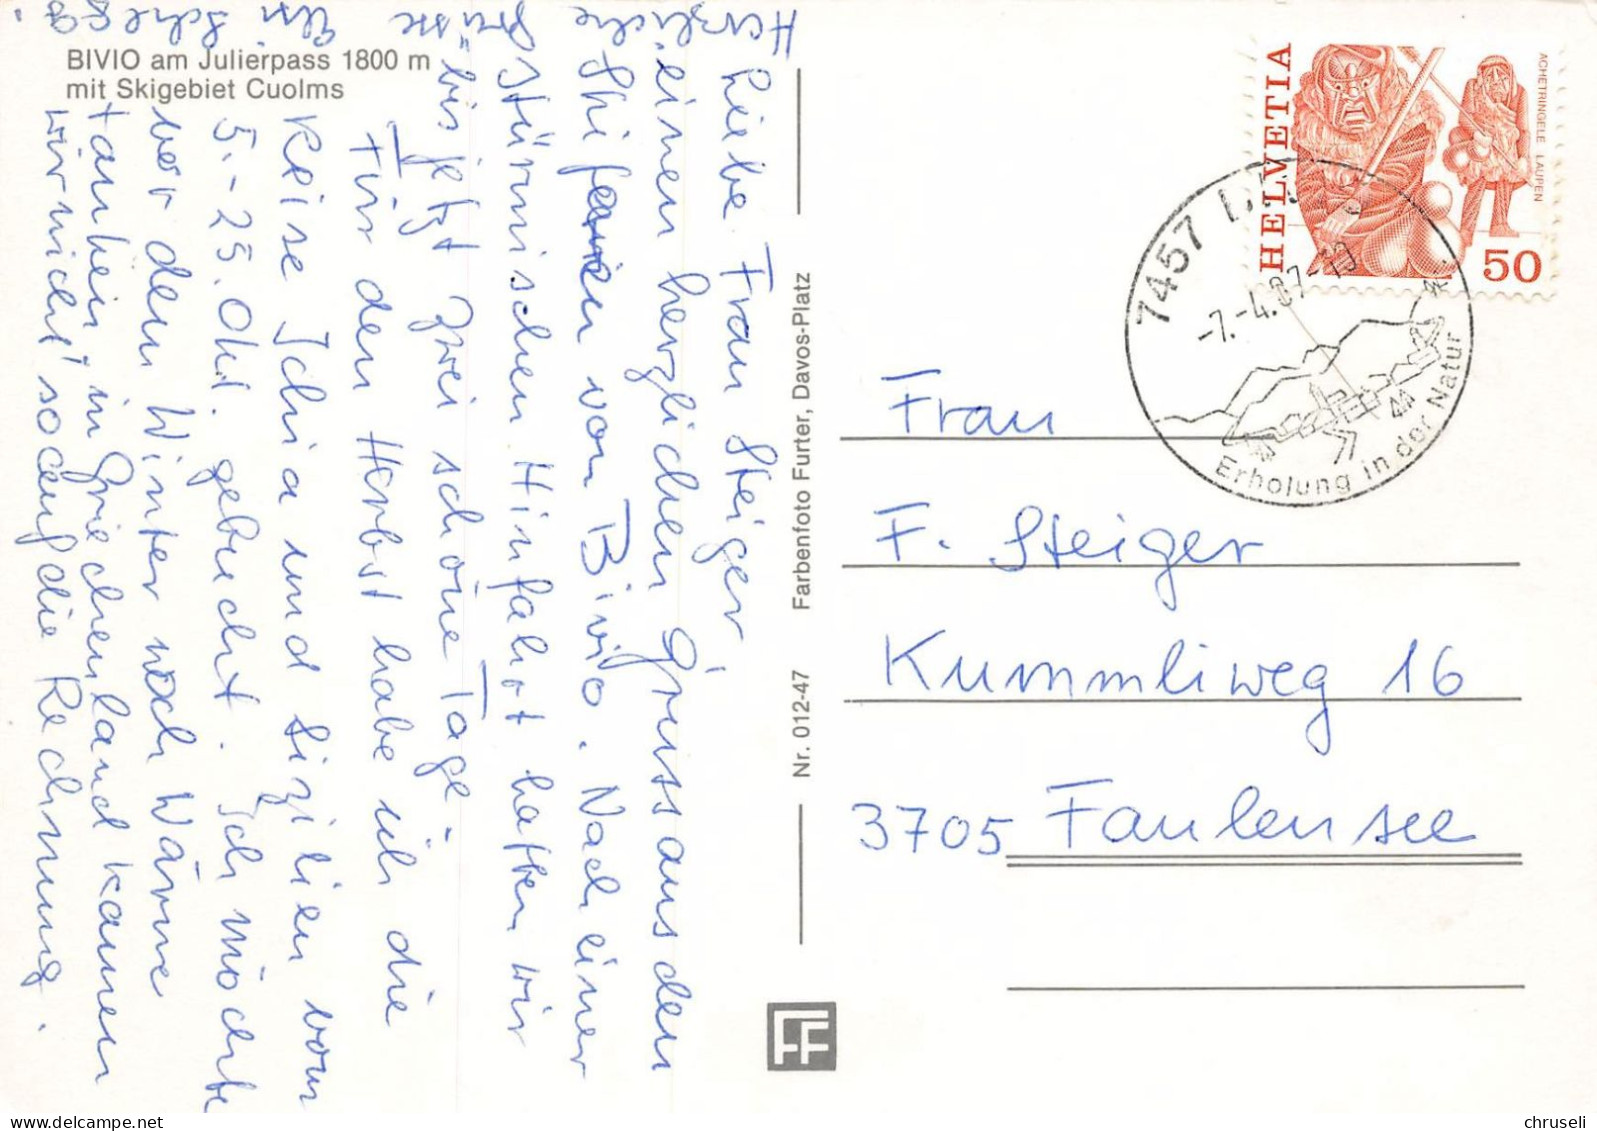 BIVIO am Julierpass 1800 m
mit Skigebiet Cuolms
Liebe Frau Steiger
einen herzlichen Gruss aus den
Skiferien von Bivio. Nach einer
stürmischen Hinfahrt hatten wir
bis jetzt zwei schöne Tage.
Für den Herbst habe ich die
Reise Ischia und Sizilien vom
5.-25. Okt. gebucht. Ich möchte
vor dem Winter noch Wärme
tanken, in Griechenland kamen
wir nicht so auf die Rechnung.
Herzliche
Grüsse
Nr. 012-47 Farbenfoto Furter, Davos-Platz
FF
HELVETIA
ACHETRINGELE LAUPEN
50
7457
-7.-4.87-10
Erholung in der Natur
Frau
F. Steiger
Kummliweg 16
3705 Faulensee
chruseli